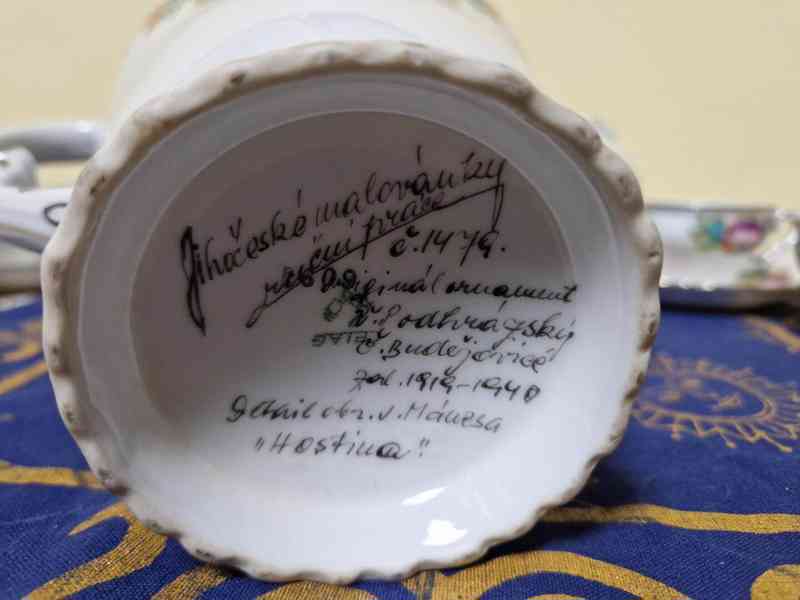 Jihočeské malovánky
ruční práce
č. 1479.
Originál ornament
V. Podhrázský
Č. Budějovice
1919-1940
Detail obr. v. Mánesa
"Hostina"